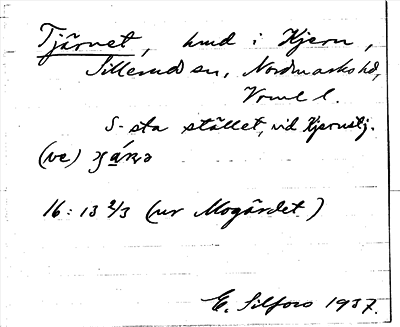 Tjärnet, hmd i Hjern,
Sillerud sn, Nordmarks hd,
Vrml l.
S-sta stället, vid Hjernstj.
(ve)
16: 13 2/3 (ur Mogärdet)
E. Silfors 1937.